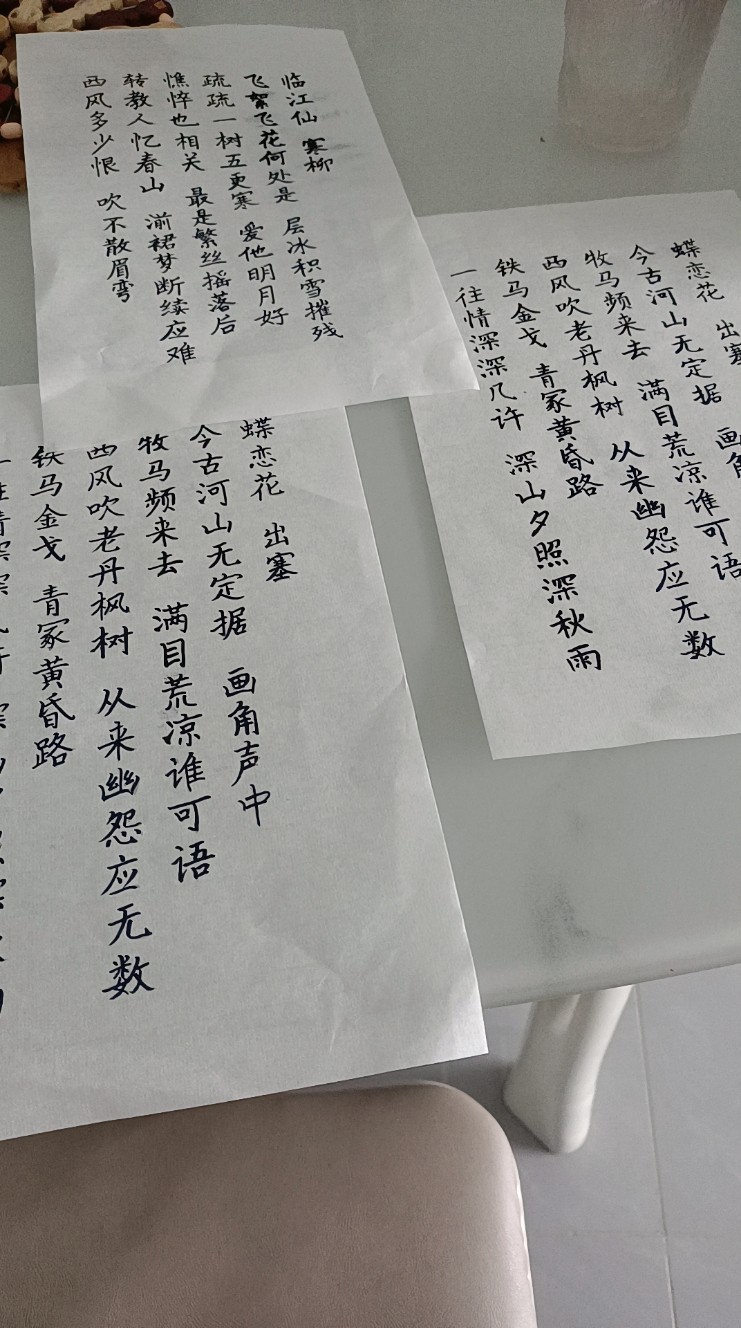 临江仙 寒柳
飞絮飞花何处是 层冰积雪摧残
疏疏一树五更寒 爱他明月好
憔悴也相关 最是繁丝摇落后
转教人忆春山 湔裙梦断续应难
西风多少恨 吹不散眉弯
蝶恋花 出塞
今古河山无定据 画角
牧马频来去 满目荒凉谁可语
西风吹老丹枫树 从来幽怨应无数
铁马金戈 青冢黄昏路
一往情深深几许 深山夕照深秋雨
蝶恋花 出塞
今古河山无定据 画角声中
牧马频来去 满目荒凉谁可语
西风吹老丹枫树 从来幽怨应无数
铁马金戈 青冢黄昏路